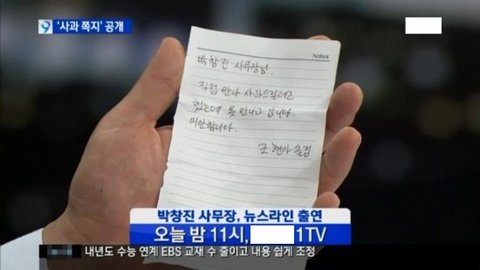 '사과 쪽지' 공개
Notes
박창진 사무장님.
직접 만나 사과드리려고
했는데 못 만나고 갑니다.
미안합니다.
조현아 올림
박창진 사무장, 뉴스라인 출연
오늘 밤 11시, 1TV
내년도 수능 연계 EBS 교재 수 줄이고 내용 쉽게 조정